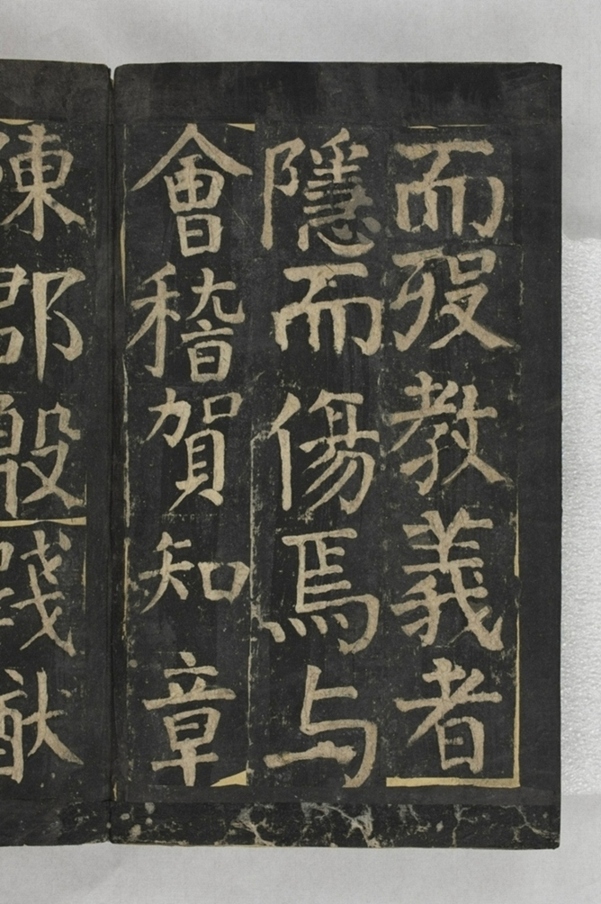 而歿教義者
隱而傷焉与
會稽賀知章
陳郡殷踐猷